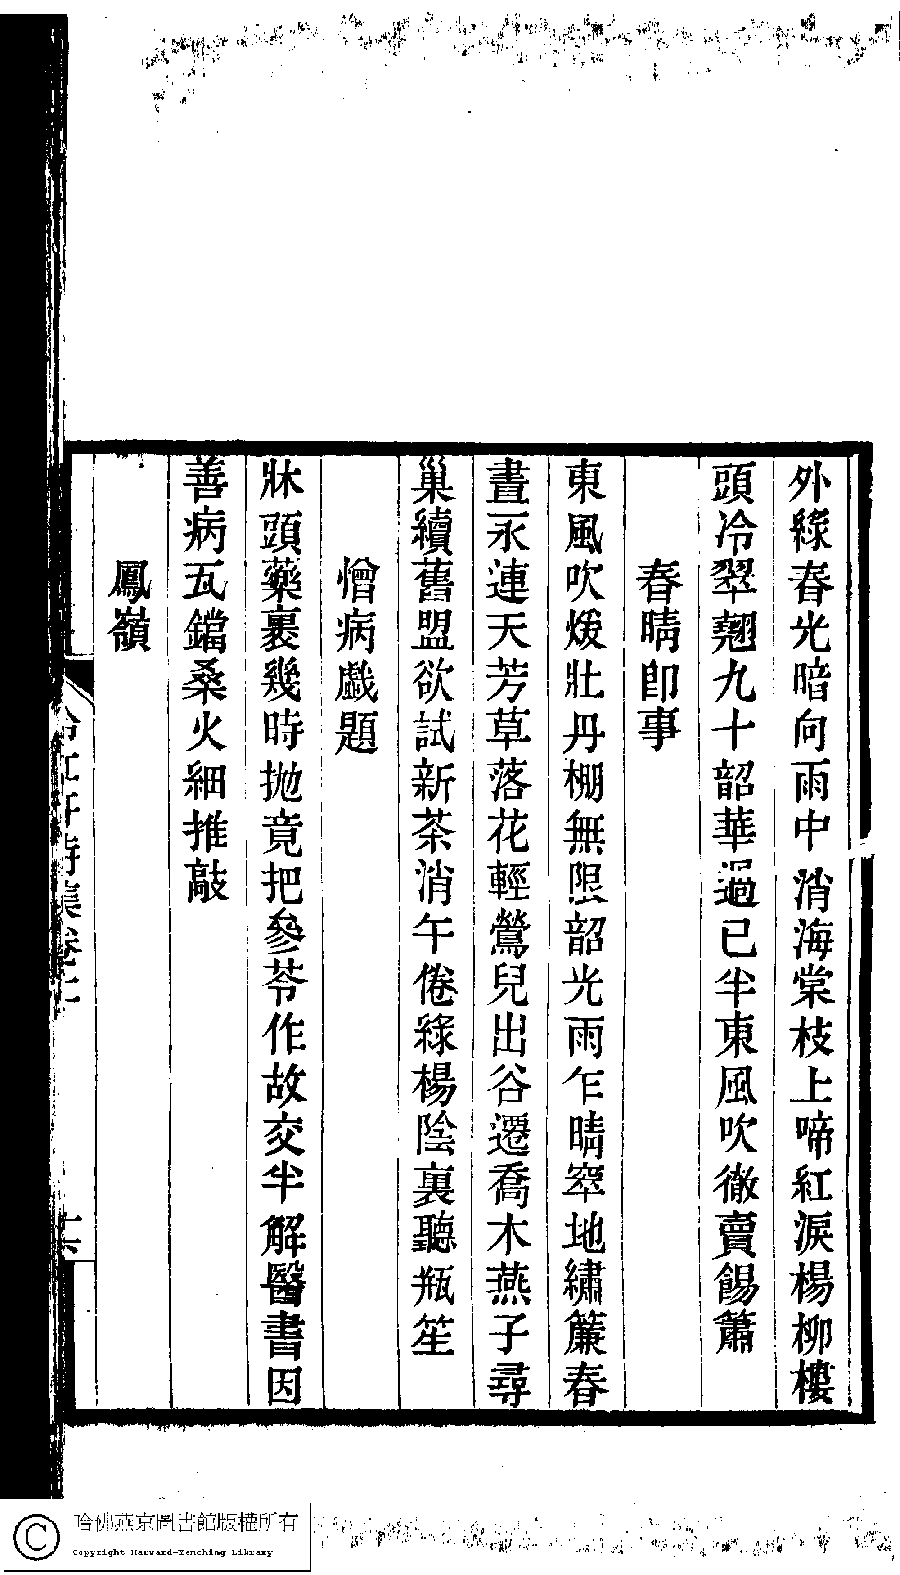 外綠春光暗向雨中消海棠枝上啼紅淚楊柳樓
頭冷翠翹九十韶華過已半東風吹徹賣餳簫
春晴卽事
東風吹煖牡丹棚無限韶光雨乍晴窣地繡簾春
晝永連天芳草落花輕鶯兒出谷遷喬木燕子尋
巢續舊盟欲試新茶消午倦綠楊陰裏聽瓶笙
憎病戲題
牀頭藥裹幾時拋竟把參苓作故交半解醫書因
善病瓦鐺桑火細推敲
鳳嶺
軒詩集卷上
十六
哈佛燕京圖書館版權所有
Copyright Harvard-Yenching Library